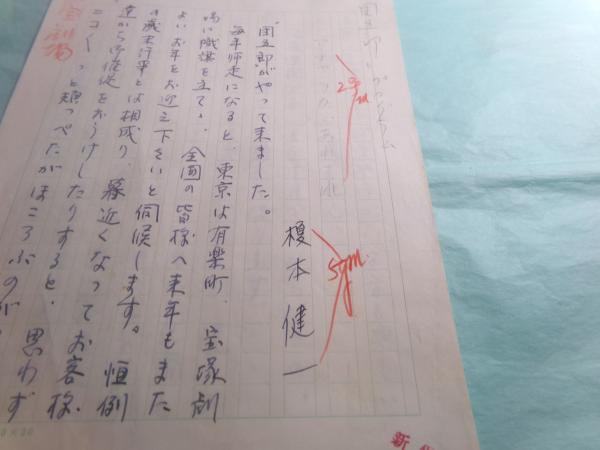 団五郎とプログラム
榎本健一
団五郎がやって来ました。
毎年師走になると、東京は有楽町、宝塚劇
場に を立てゝ、全国の皆様へ来年もまた
よいお年をお迎え下さいと伺候します。恒例
の歳末行事とは相成り、暮近くなってお客様
達から御催促をおうけしたりすると、思わず
ニコ〱っと頬っぺたがほころぶのが
新